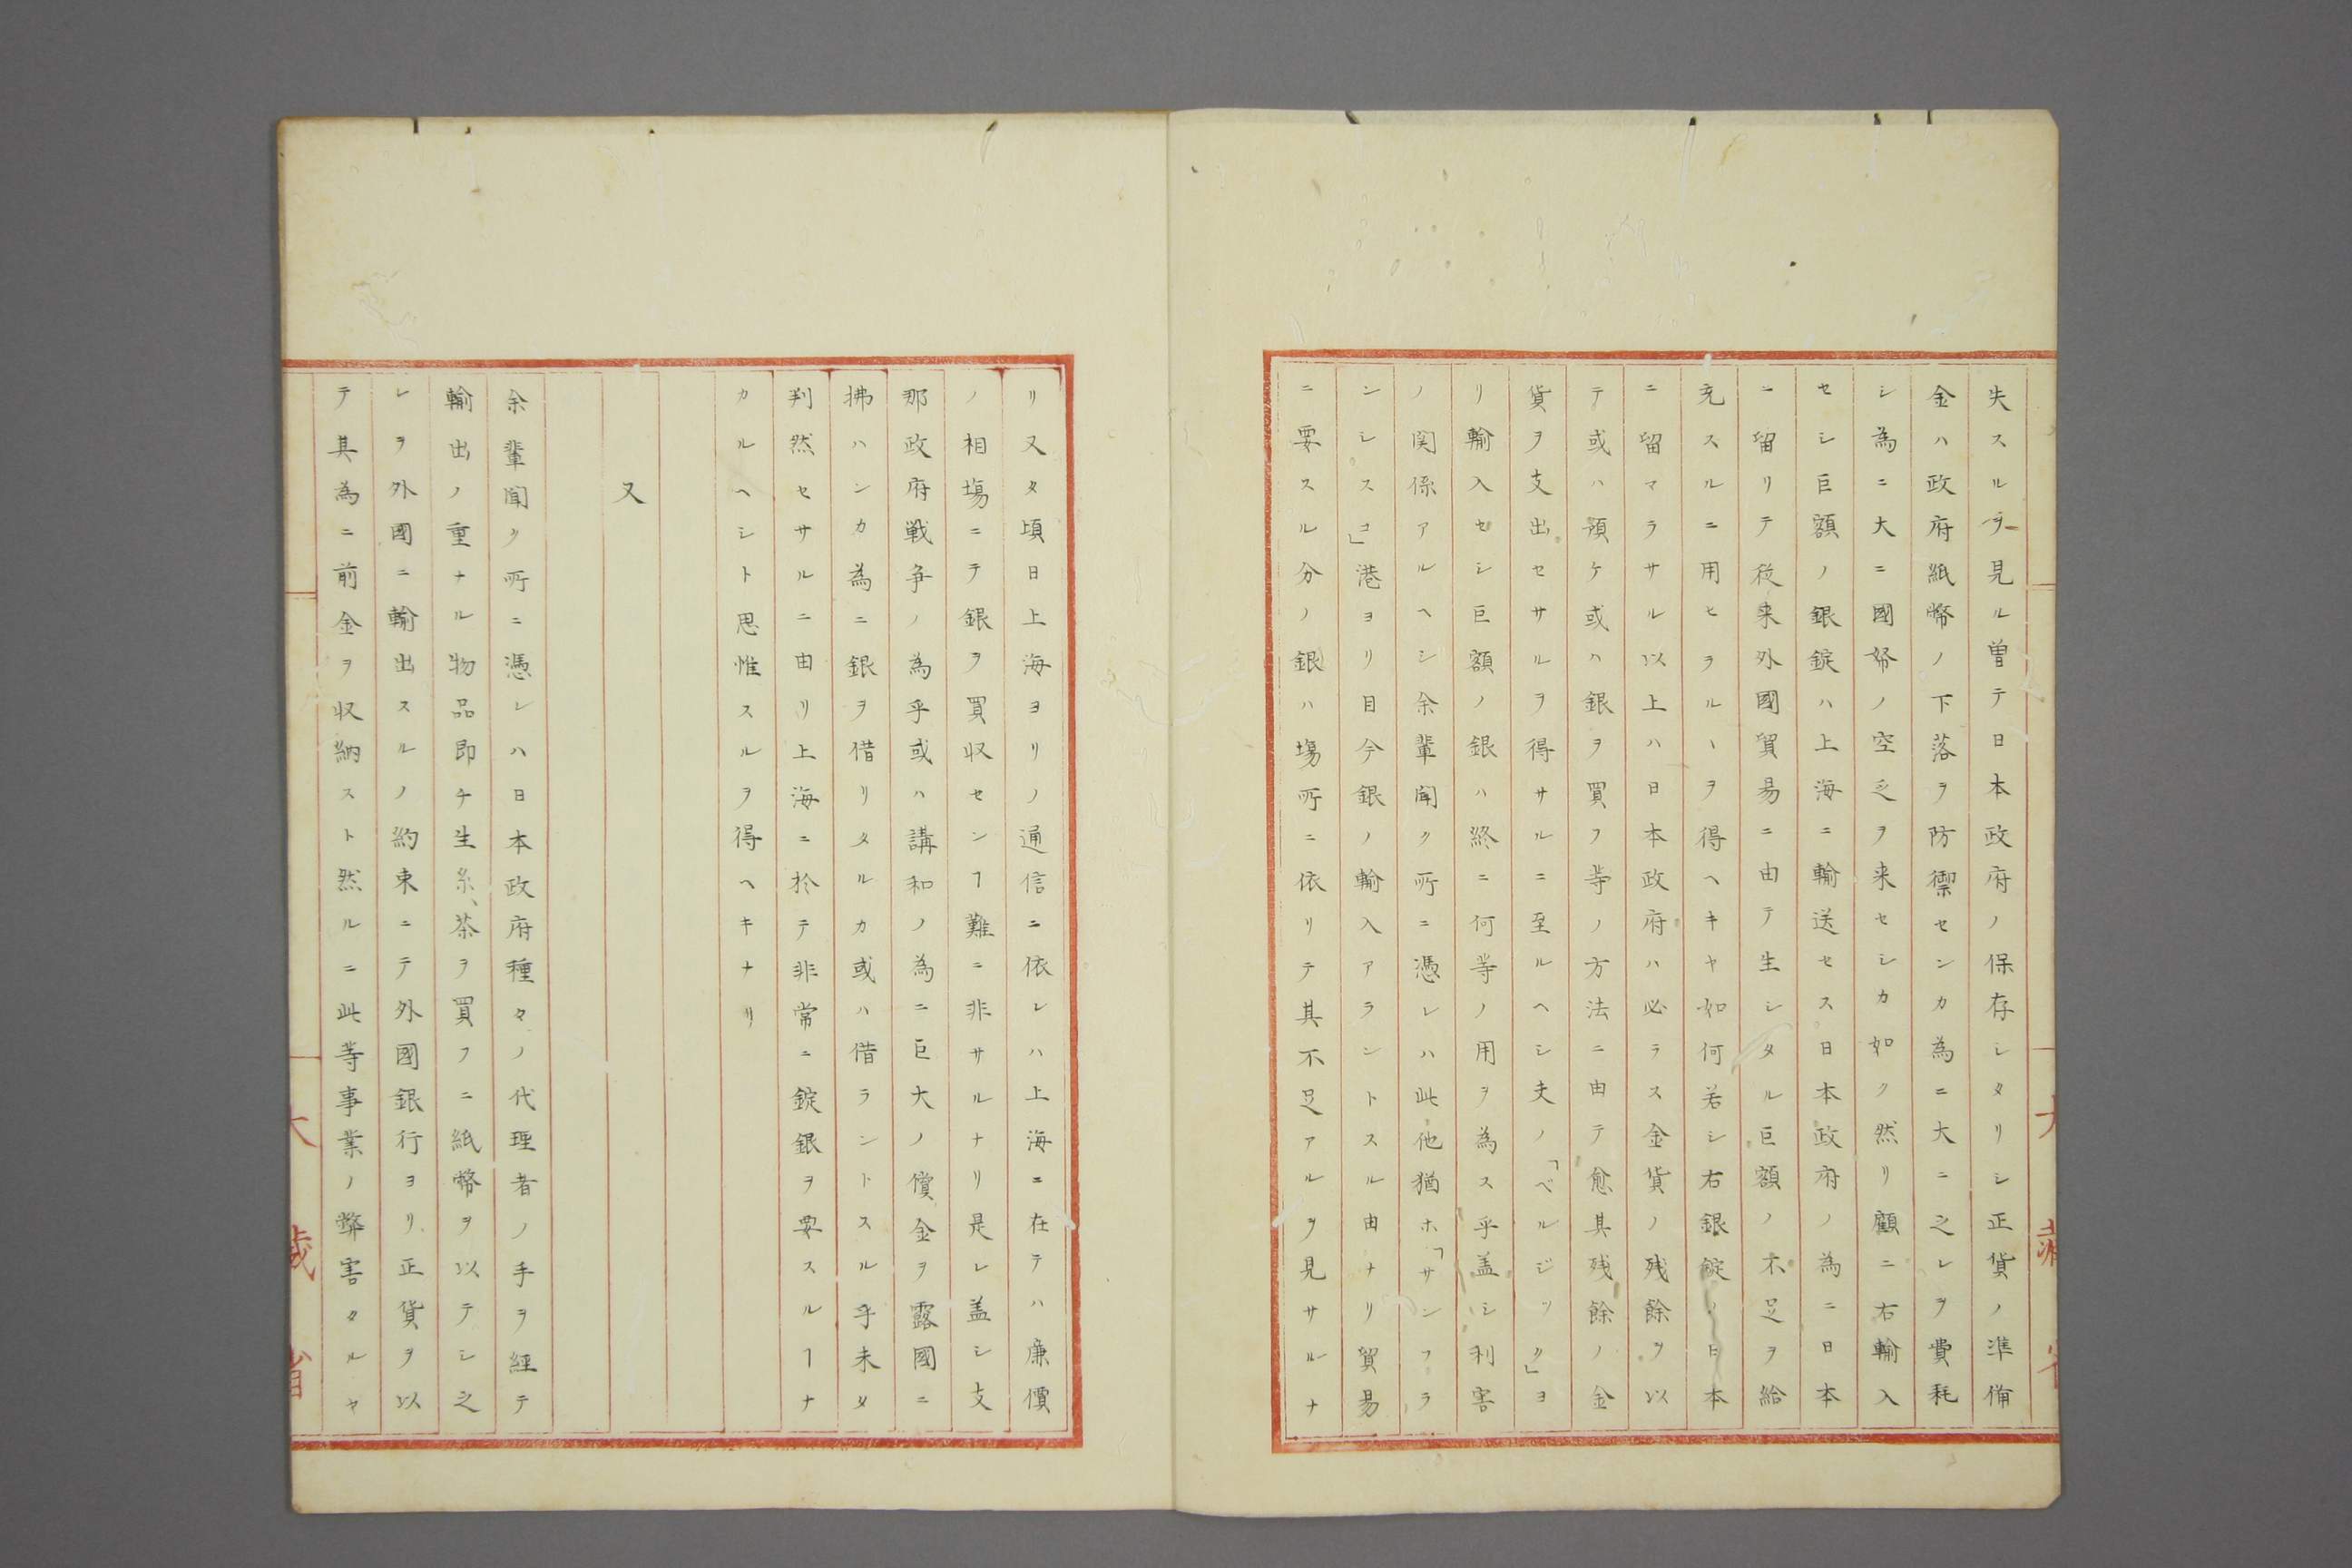 失スルヲ見ル曽テ日本政府ノ保存シタリシ正貨ノ準備
金ハ政府紙幣ノ下落ヲ防禦センカ為ニ大ニ之レヲ費耗
シ為ニ大ニ國帑ノ空乏ヲ来セシカ如ク然リ顧ニ右輸入
セシ巨額ノ銀錠ハ上海ニ輸送セス日本政府ノ為ニ日本
ニ留リテ従来外國貿易ニ由テ生シタル巨額ノ不足ヲ給
充スルニ用ヒラルヽヲ得ヘキヤ如何若シ右銀錠ノ日本
ニ留マラサル以上ハ日本政府ハ必ラス金貨ノ残餘ヲ以
テ或ハ預ケ或ハ銀ヲ買フ等ノ方法ニ由テ愈其残餘ノ金
貨ヲ支出セサルヲ得サルニ至ルヘシ夫ノ「ベルジック」ヨ
リ輸入セシ巨額ノ銀ハ終ニ何等ノ用ヲ為ス乎盖シ利害
ノ関係アルヘシ余輩聞ク所ニ憑レハ此他猶ホ「サンフラ
ンシスコ」港ヨリ目今銀ノ輸入アラントスル由ナリ貿易
ニ要スル分ノ銀ハ場所ニ依リテ其不足アルヲ見サルナ
リ又タ頃日上海ヨリノ通信ニ依レハ上海ニ在テハ廉價
ノ相場ニテ銀ヲ買収センヿ難ニ非サルナリ是レ盖シ支
那政府戦争ノ為乎或ハ講和ノ為ニ巨大ノ償金ヲ露國ニ
拂ハンカ為ニ銀ヲ借リタルカ或ハ借ラントスル乎未タ
判然セサルニ由リ上海ニ於テ非常ニ錠銀ヲ要スルヿナ
カルヘシト思惟スルヲ得ヘキナリ
又
余輩聞ク所ニ憑レハ日本政府種々ノ代理者ノ手ヲ経テ
輸出ノ重ナル物品即チ生糸、茶ヲ買フニ紙幣ヲ以テシ之
レヲ外國ニ輸出スルノ約束ニテ外國銀行ヨリ正貨ヲ以
テ其為ニ前金ヲ収納スト然ルニ此等事業ノ弊害タルヤ
大藏省